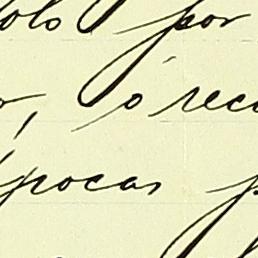 olo por
, o reco
épocas p